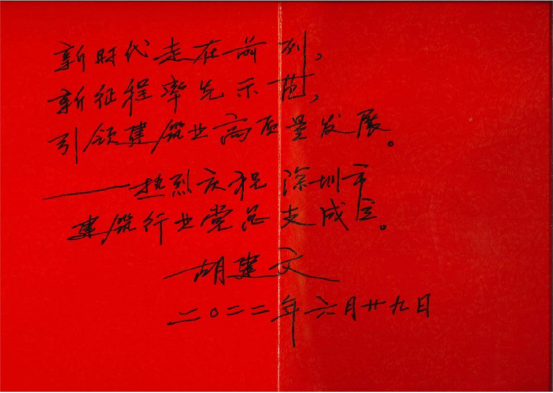 新时代走在前列,
新征程率先示范,
引领建筑业高质量发展。
——热烈庆祝深圳市
建筑行业党总支成立。
胡建文
二〇二二年六月廿九日